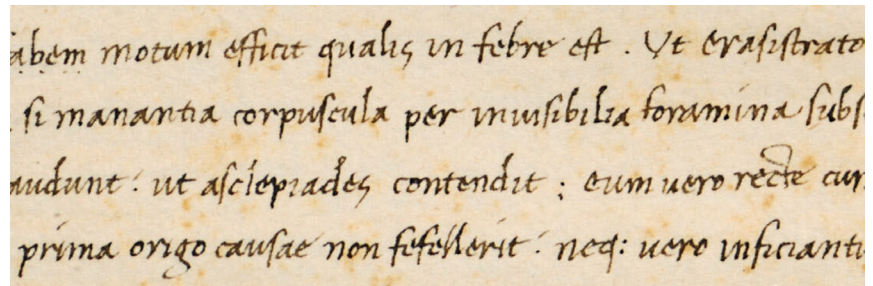 abem motum efficit qualis in febre est . Ut erasistrato
. si manantia corpuscula per inuisibilia foramina subs
audunt : ut asclepiades contendit ; eum uero recte cur
prima origo causae non fefellerit : neq: uero inficianti